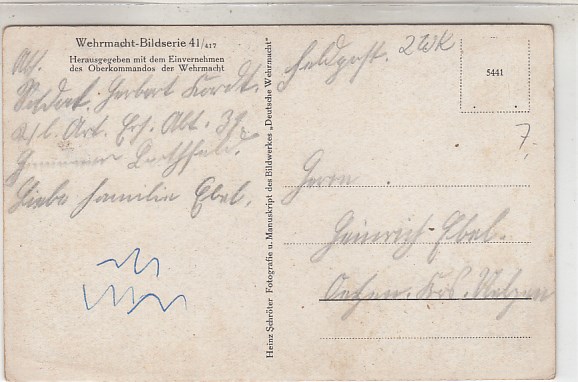 Wehrmacht-Bildserie 41/417
Herausgegeben mit dem Einvernehmen
des Oberkommandos der Wehrmacht
Abs.
Soldat. Herbert
Art. Ers. Abt.
Liebe Familie Ebel.
Heinz Schröter Fotografie u. Manuskript des Bildwerkes „Deutsche Wehrmacht"
Feldpost. 2WK
5441
7,-
Herrn
Heinrich Ebel.
Krs. Uelzen